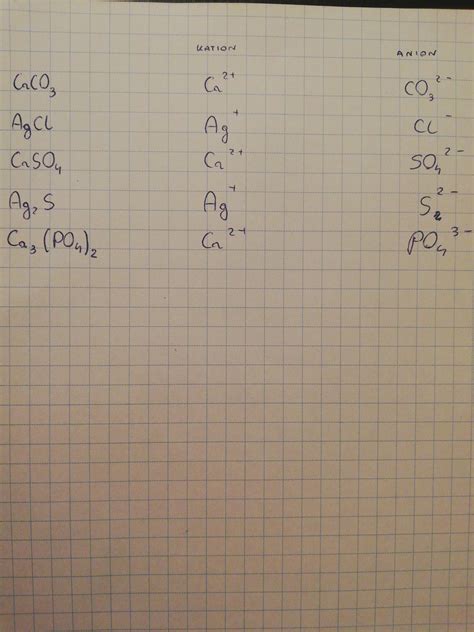 KATION ANION
CaCO₃ Ca²⁺ CO₃²⁻
AgCl Ag⁺ Cl⁻
CaSO₄ Ca²⁺ SO₄²⁻
Ag₂S Ag⁺ S₂²⁻
Ca₃(PO₄)₂ Ca²⁺ PO₄³⁻